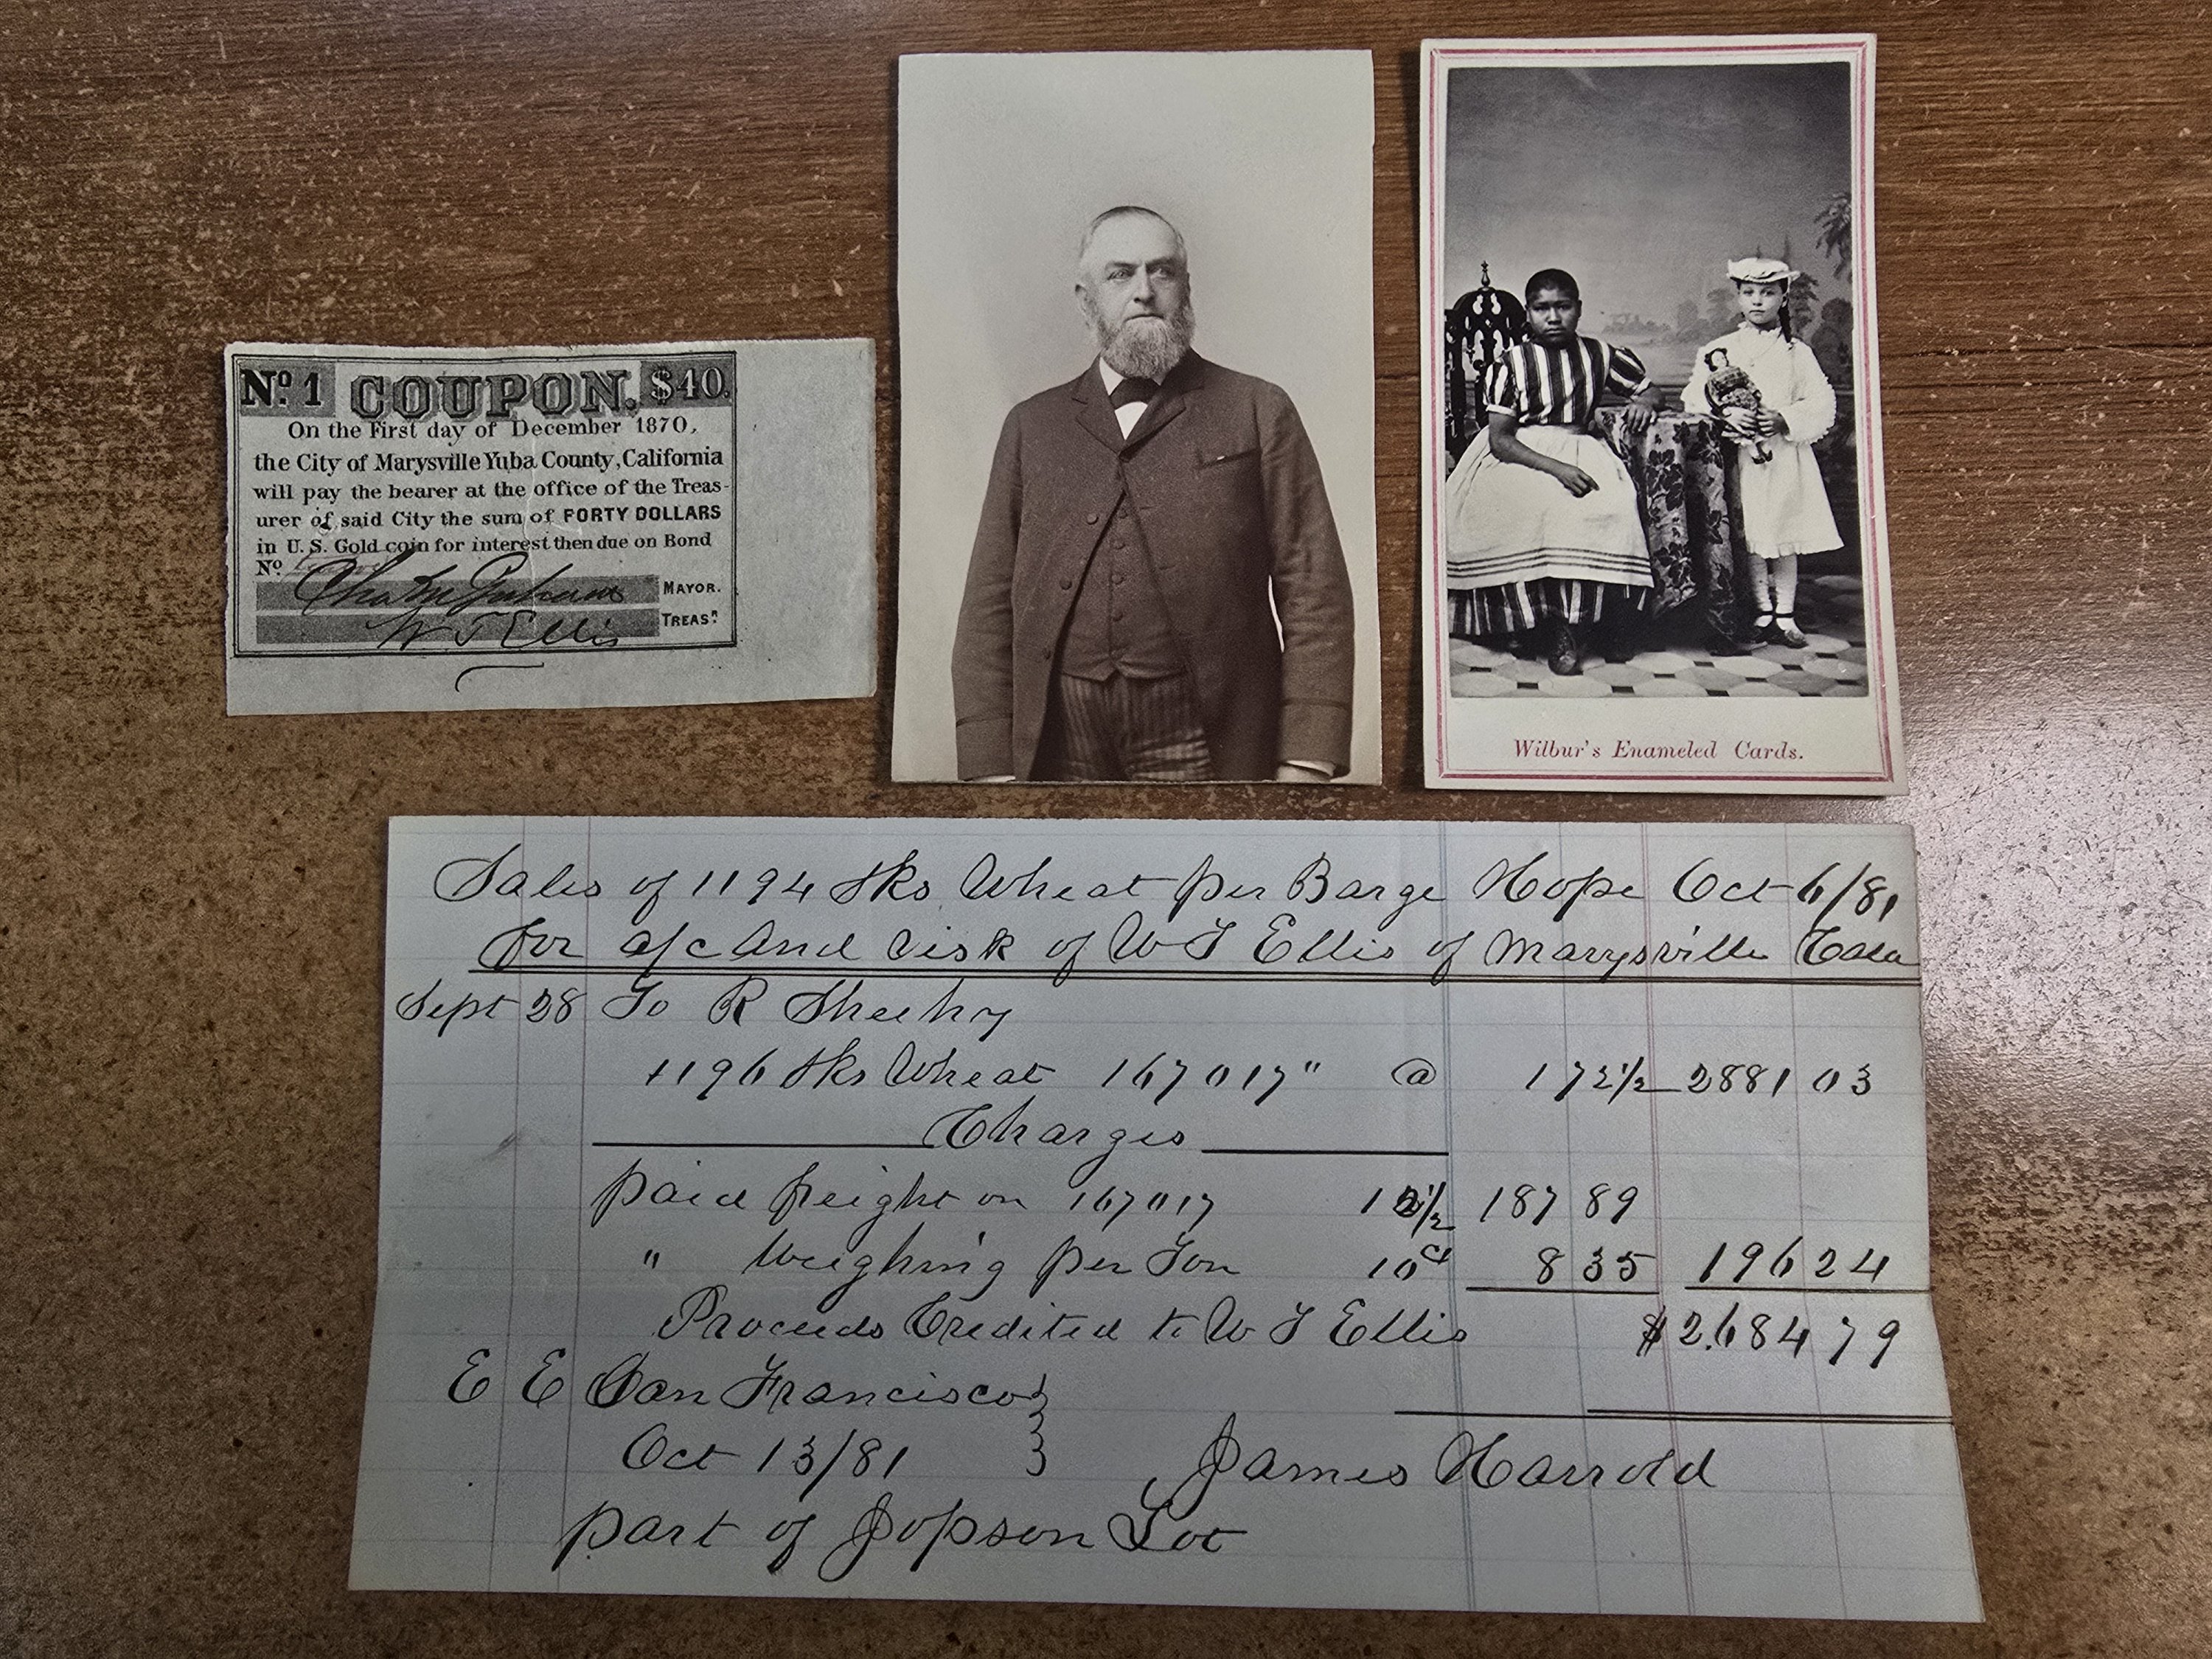 No. 1 COUPON. $40.
On the First day of December 1870,
the City of Marysville Yuba County, California
will pay the bearer at the office of the Treas-
urer of said City the sum of FORTY DOLLARS
in U.S. Gold coin for interest then due on Bond
No.
MAYOR.
W T Ellis TREASR.
Wilbur's Enameled Cards.
Sales of 1194 Sks Wheat per Barge Hope Oct 6/81
for a/c And Risk of W T Ellis of Marysville
Sept 28 To R Sheehy
1196 Sks Wheat 167017" @ 172½ 2881 03
Charges
paid freight on 167017 12½ 187 89
" Weighing per Ton 10ct 8 35 196 24
Proceeds Credited to W T Ellis $2.684 79
E E San Francisco }
Oct 13/81 James Harrold
part of Jopson Lot